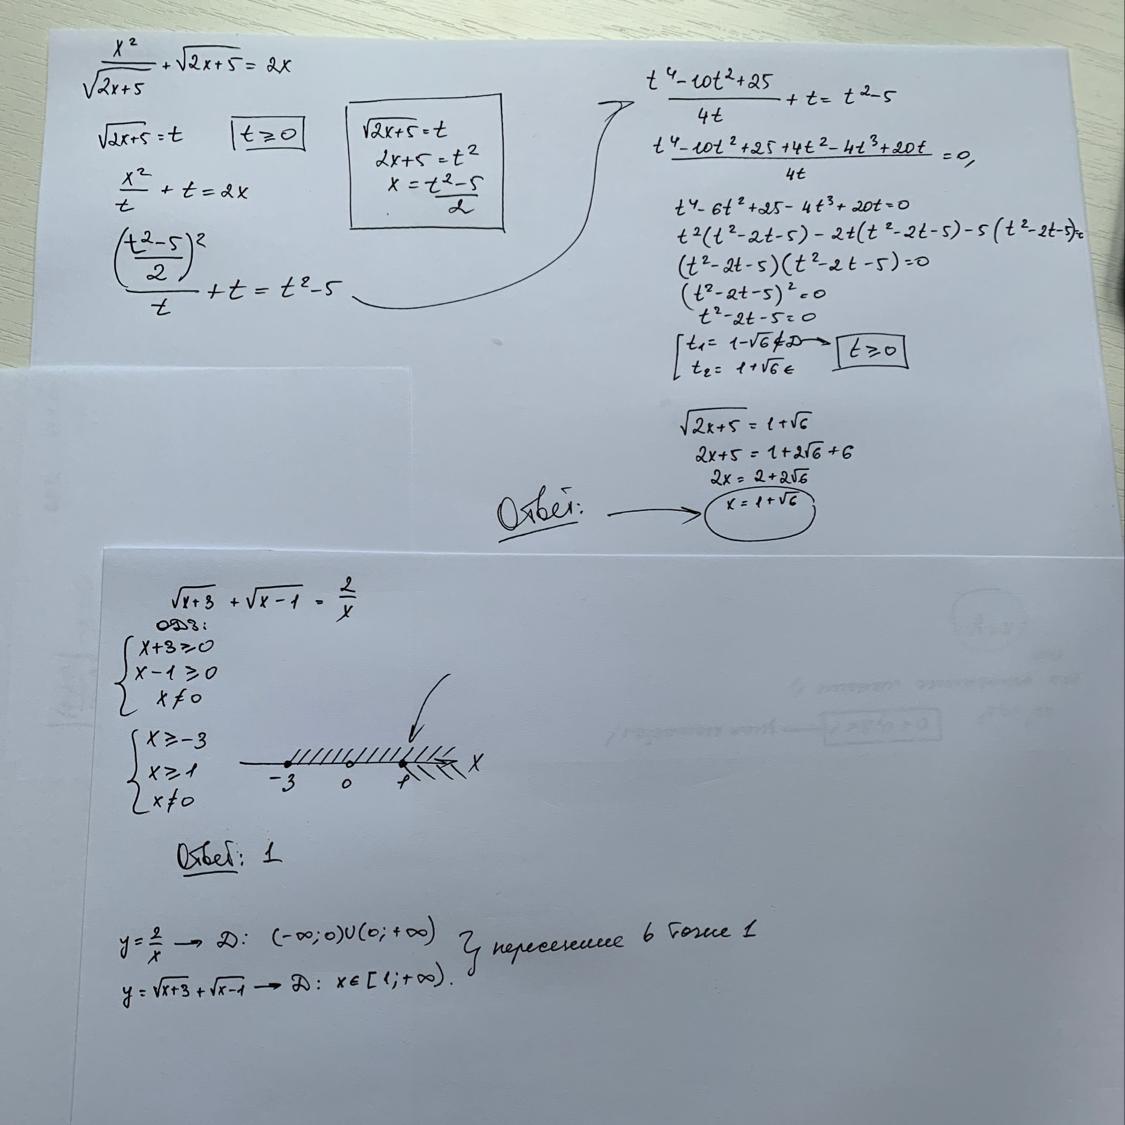 x²/√(2x+5) + √(2x+5) = 2x
√(2x+5) = t   t ⩾ 0
x²/t + t = 2x
((t²-5)/2)²/t + t = t²-5
√(2x+5) = t
2x+5 = t²
x = (t²-5)/2
(t⁴-10t²+25)/4t + t = t²-5
(t⁴-10t²+25+4t²-4t³+20t)/4t = 0,
t⁴-6t²+25-4t³+20t=0
t²(t²-2t-5)-2t(t²-2t-5)-5(t²-2t-5)=
(t²-2t-5)(t²-2t-5)=0
(t²-2t-5)²=0
t²-2t-5=0
t₁ = 1-√6 ∉ D → t ⩾ 0
t₂ = 1+√6 ∈
√(2x+5) = 1+√6
2x+5 = 1+2√6+6
2x = 2+2√6
Ответ: → x = 1+√6
√(x+3) + √(x-1) = 2/x
ОДЗ:
x+3 ⩾ 0
x-1 ⩾ 0
x ≠ 0
x ⩾ -3
x ⩾ 1
x ≠ 0
-3 0 1 x
Ответ: 1
y = 2/x → D: (-∞;0)∪(0;+∞)
y = √(x+3) + √(x-1) → D: x∈[1;+∞).
} пересечение в точке 1